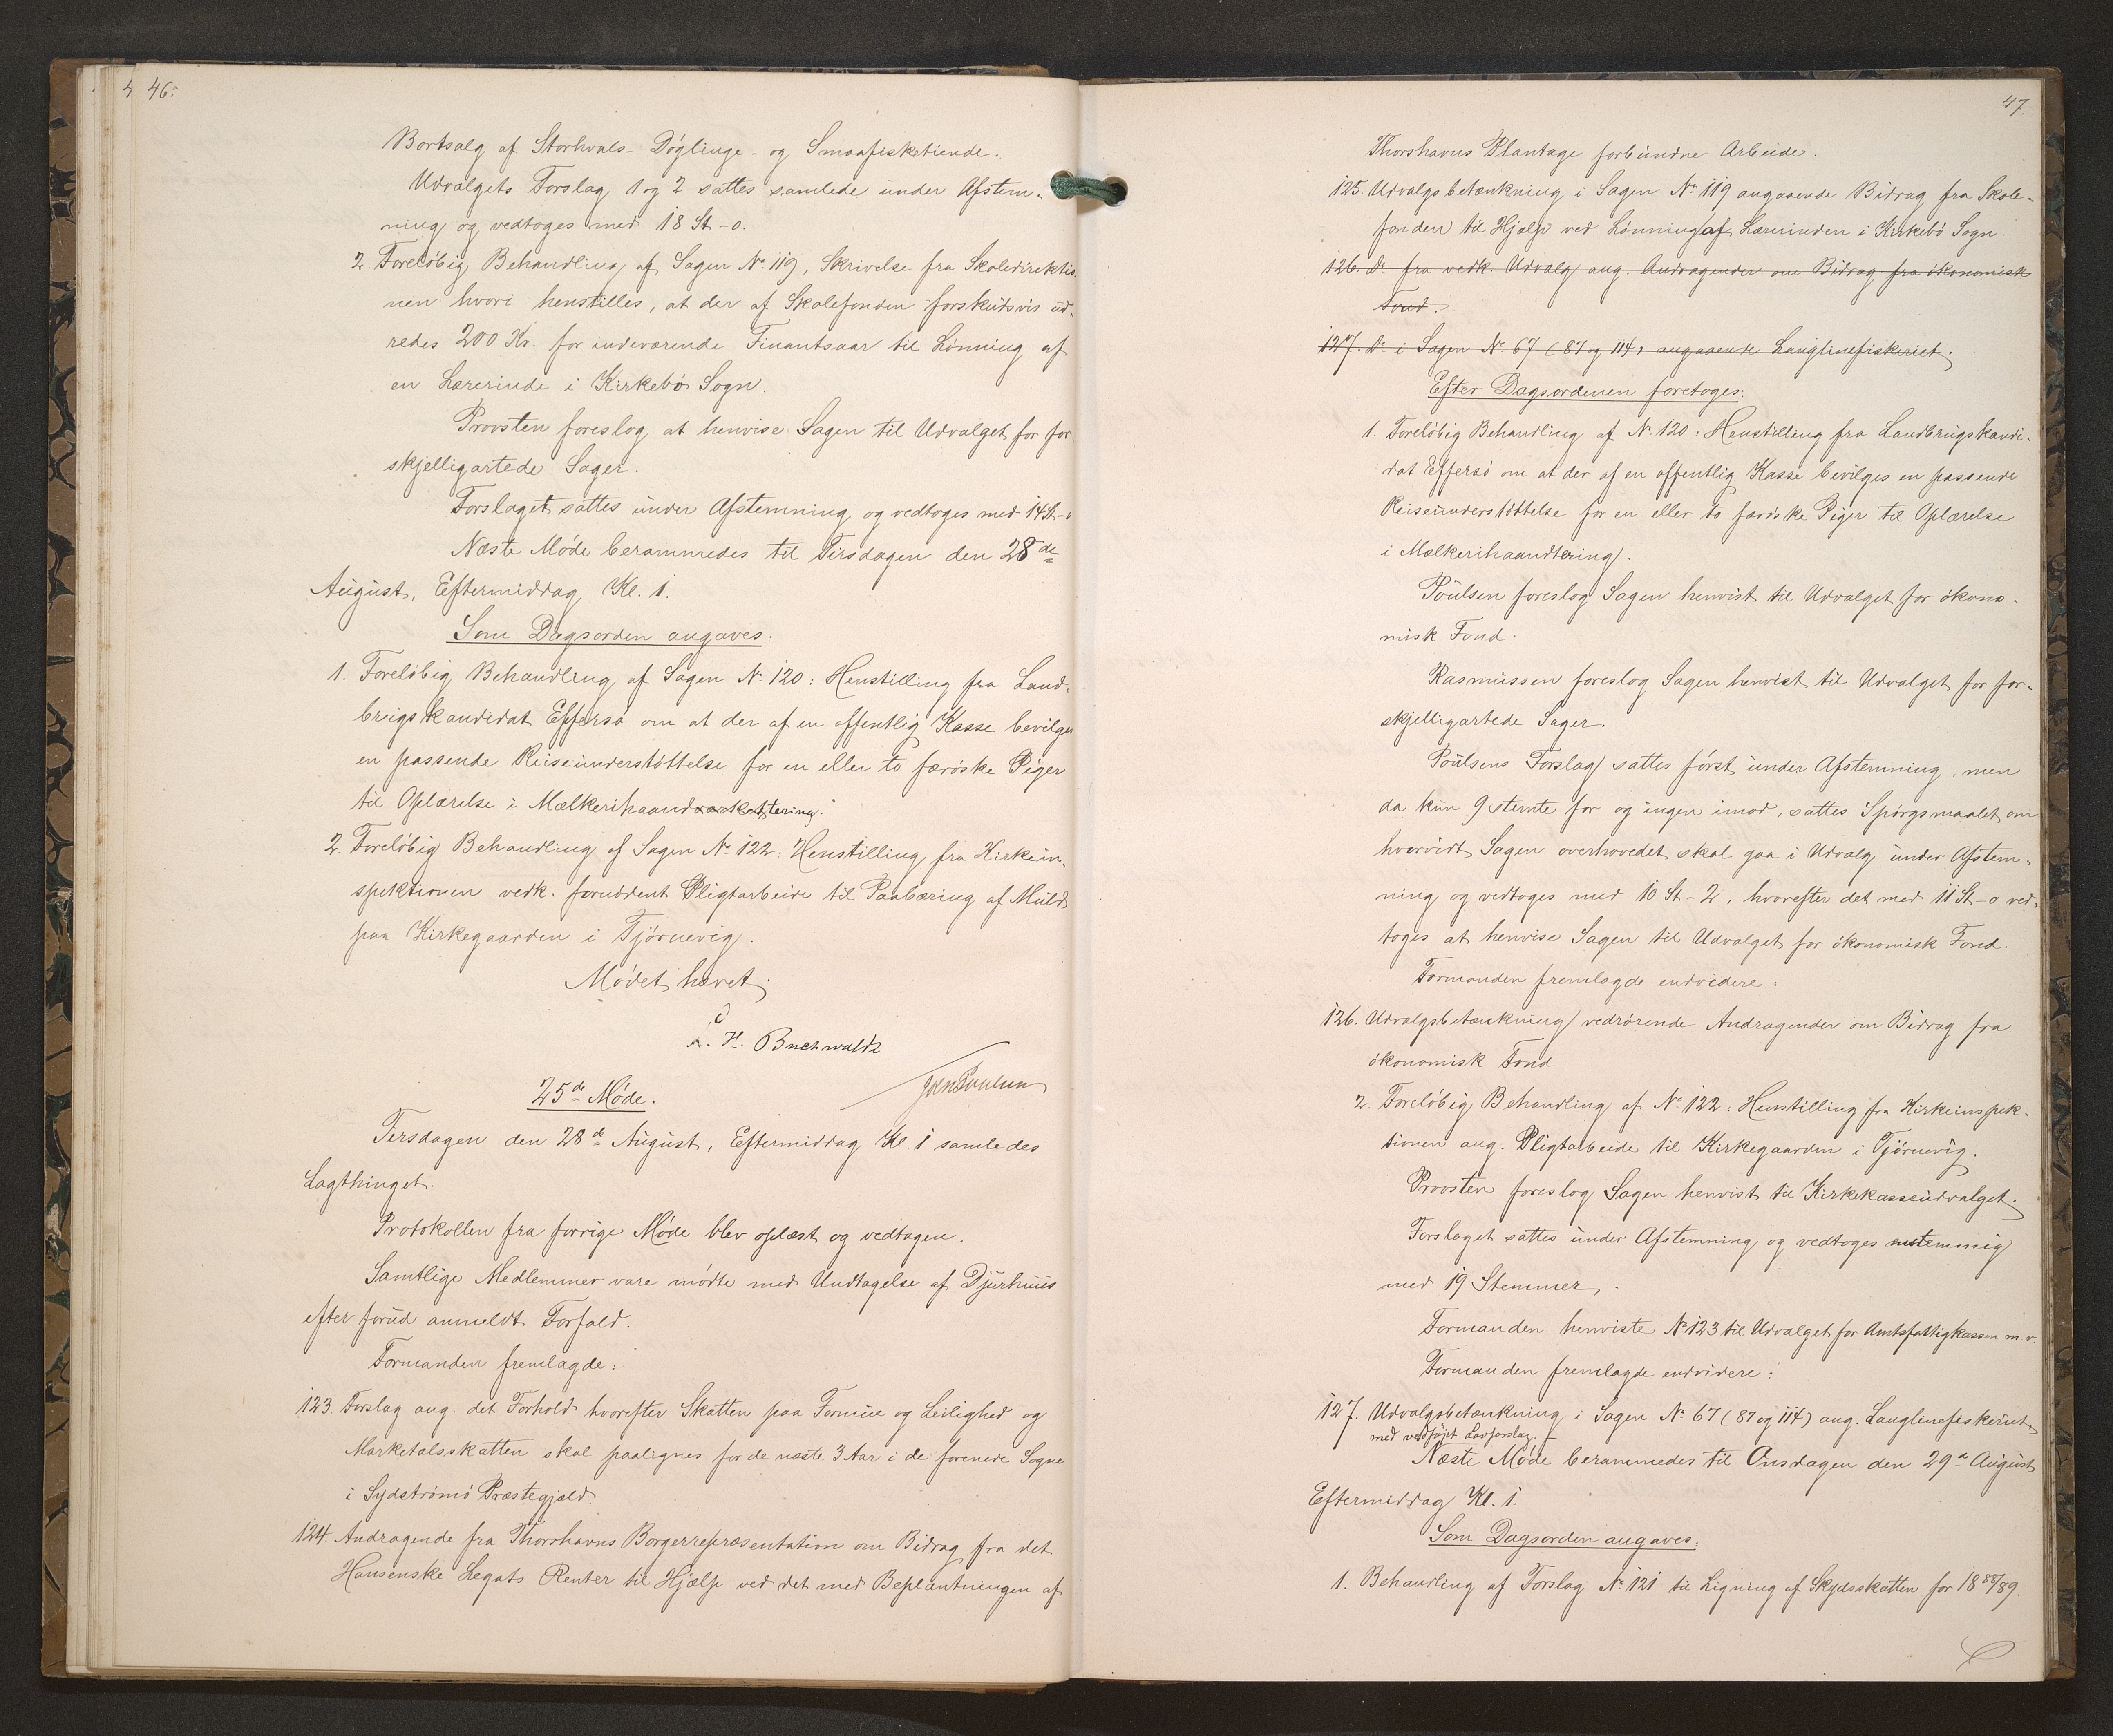 46.
Bortsalg af Storhvals- Döglinge- og Smaafisketiende.
Udvalgets Forslag 1 og 2 sattes samlede under Afstem-
ning og vedtoges med 18 St - 0.
2. Foreløbig Behandling af Sagen No 119, Skrivelse fra Skoledirektio
nen hvori henstilles, at der af Skolefonden forskudsvis ud-
redes 200 Kr. for indeværende Finantsaar til Lønning af
en Lærerinde i Kirkebø Sogn.
Provsten foreslog at henvise Sagen til Udvalget for for-
skjelligartede Sager.
Forslaget sattes under Afstemning og vedtoges med 14 St - 0
Næste Møde berammedes til Tirsdagen den 28de
August, Eftermiddag Kl. 1.
Som Dagsorden angaves:
1. Foreløbig Behandling af Sagen No 120: Henstilling fra Land-
brugskandidat Effersø om at der af en offentlig Kasse bevilges
en passende Reiseunderstøttelse for en eller to færøske Piger
til Oplærelse i Mælkerihaandtering.
2. Foreløbig Behandling af Sagen No 122: Henstilling fra Kirkein-
spektionen vedk. fornødent Pligtarbeide til Paabæring af Muld
paa Kirkegaarden i Tjørnevig.
Mødet hævet.
C. H. Buchwaldt
Joen Poulsen
25de Møde.
Tirsdagen den 28de August, Eftermiddag Kl. 1 samledes
Lagthinget.
Protokollen fra forrige Møde blev oplæst og vedtagen.
Samtlige Medlemmer vare mødte med Undtagelse af Djurhuus
efter forud anmeldt Forfald.
Formanden fremlagde:
123. Forslag ang. det Forhold hvorefter Skatten paa Formue og Leilighed og
Marketalsskatten skal paalignes for de næste 3 Aar i de forenede Sogne
i Sydstrømø Præstegjæld.
124. Andragende fra Thorshavns Borgerrepræsentation om Bidrag fra det
Hansenske Legats Renter til Hjælp ved det med Beplantningen af
47.
Thorshavns Plantage forbundne Arbeide.
125. Udvalgsbetænkning i Sagen No 119 angaaende Bidrag fra Skole-
fonden til Hjælp ved Lønning af Lærerinden i Kirkebø Sogn.
126. Do fra vedk. Udvalg ang. Andragender om Bidrag fra økonomisk
Fond.
127. Do i Sagen No 67 (87 og 114) angaaende Langlinefiskeriet.
Efter Dagsordenen foretoges:
1. Foreløbig Behandling af No 120: Henstilling fra Landbrugskandi-
dat Effersø om at der af en offentlig Kasse bevilges en passende
Reiseunderstøttelse for en eller to færøske Piger til Oplærelse
i Mælkerihaandtering.
Poulsen foreslog Sagen henvist til Udvalget for økono-
misk Fond.
Rasmussen foreslog Sagen henvist til Udvalget for for-
skjelligartede Sager.
Poulsens Forslag sattes først under Afstemning, men
da kun 9 stemte for og ingen imod, sattes Spørgsmaalet om
hvorvidt Sagen overhovedet skal gaa i Udvalg under Afstem-
ning og vedtoges med 10 St - 2, hvorefter det med 11 St - 0 ved-
toges at henvise Sagen til Udvalget for økonomisk Fond.
Formanden fremlagde endvidere:
126. Udvalgsbetænkning vedrørende Andragender om Bidrag fra
økonomisk Fond
2. Foreløbig Behandling af No 122: Henstilling fra Kirkeinspek-
tionen ang. Pligtarbeide til Kirkegaarden i Tjørnevig.
Provsten foreslog Sagen henvist til Kirkekasseudvalget.
Forslaget sattes under Afstemning og vedtoges enstemmig
med 19 Stemmer.
Formanden henviste No 123 til Udvalget for Amtsfattigkassen m. v.
Formanden fremlagde endvidere:
127. Udvalgsbetænkning i Sagen No 67 (87 og 114) ang. Langlinefiskeriet
med vedføjet Lovforslag.
Næste Møde berammedes til Onsdagen den 29de August
Eftermiddag Kl. 1.
Som Dagsorden angaves:
1. Behandling af Forslag No 121 til Ligning af Skydsskatten for 1888/89.